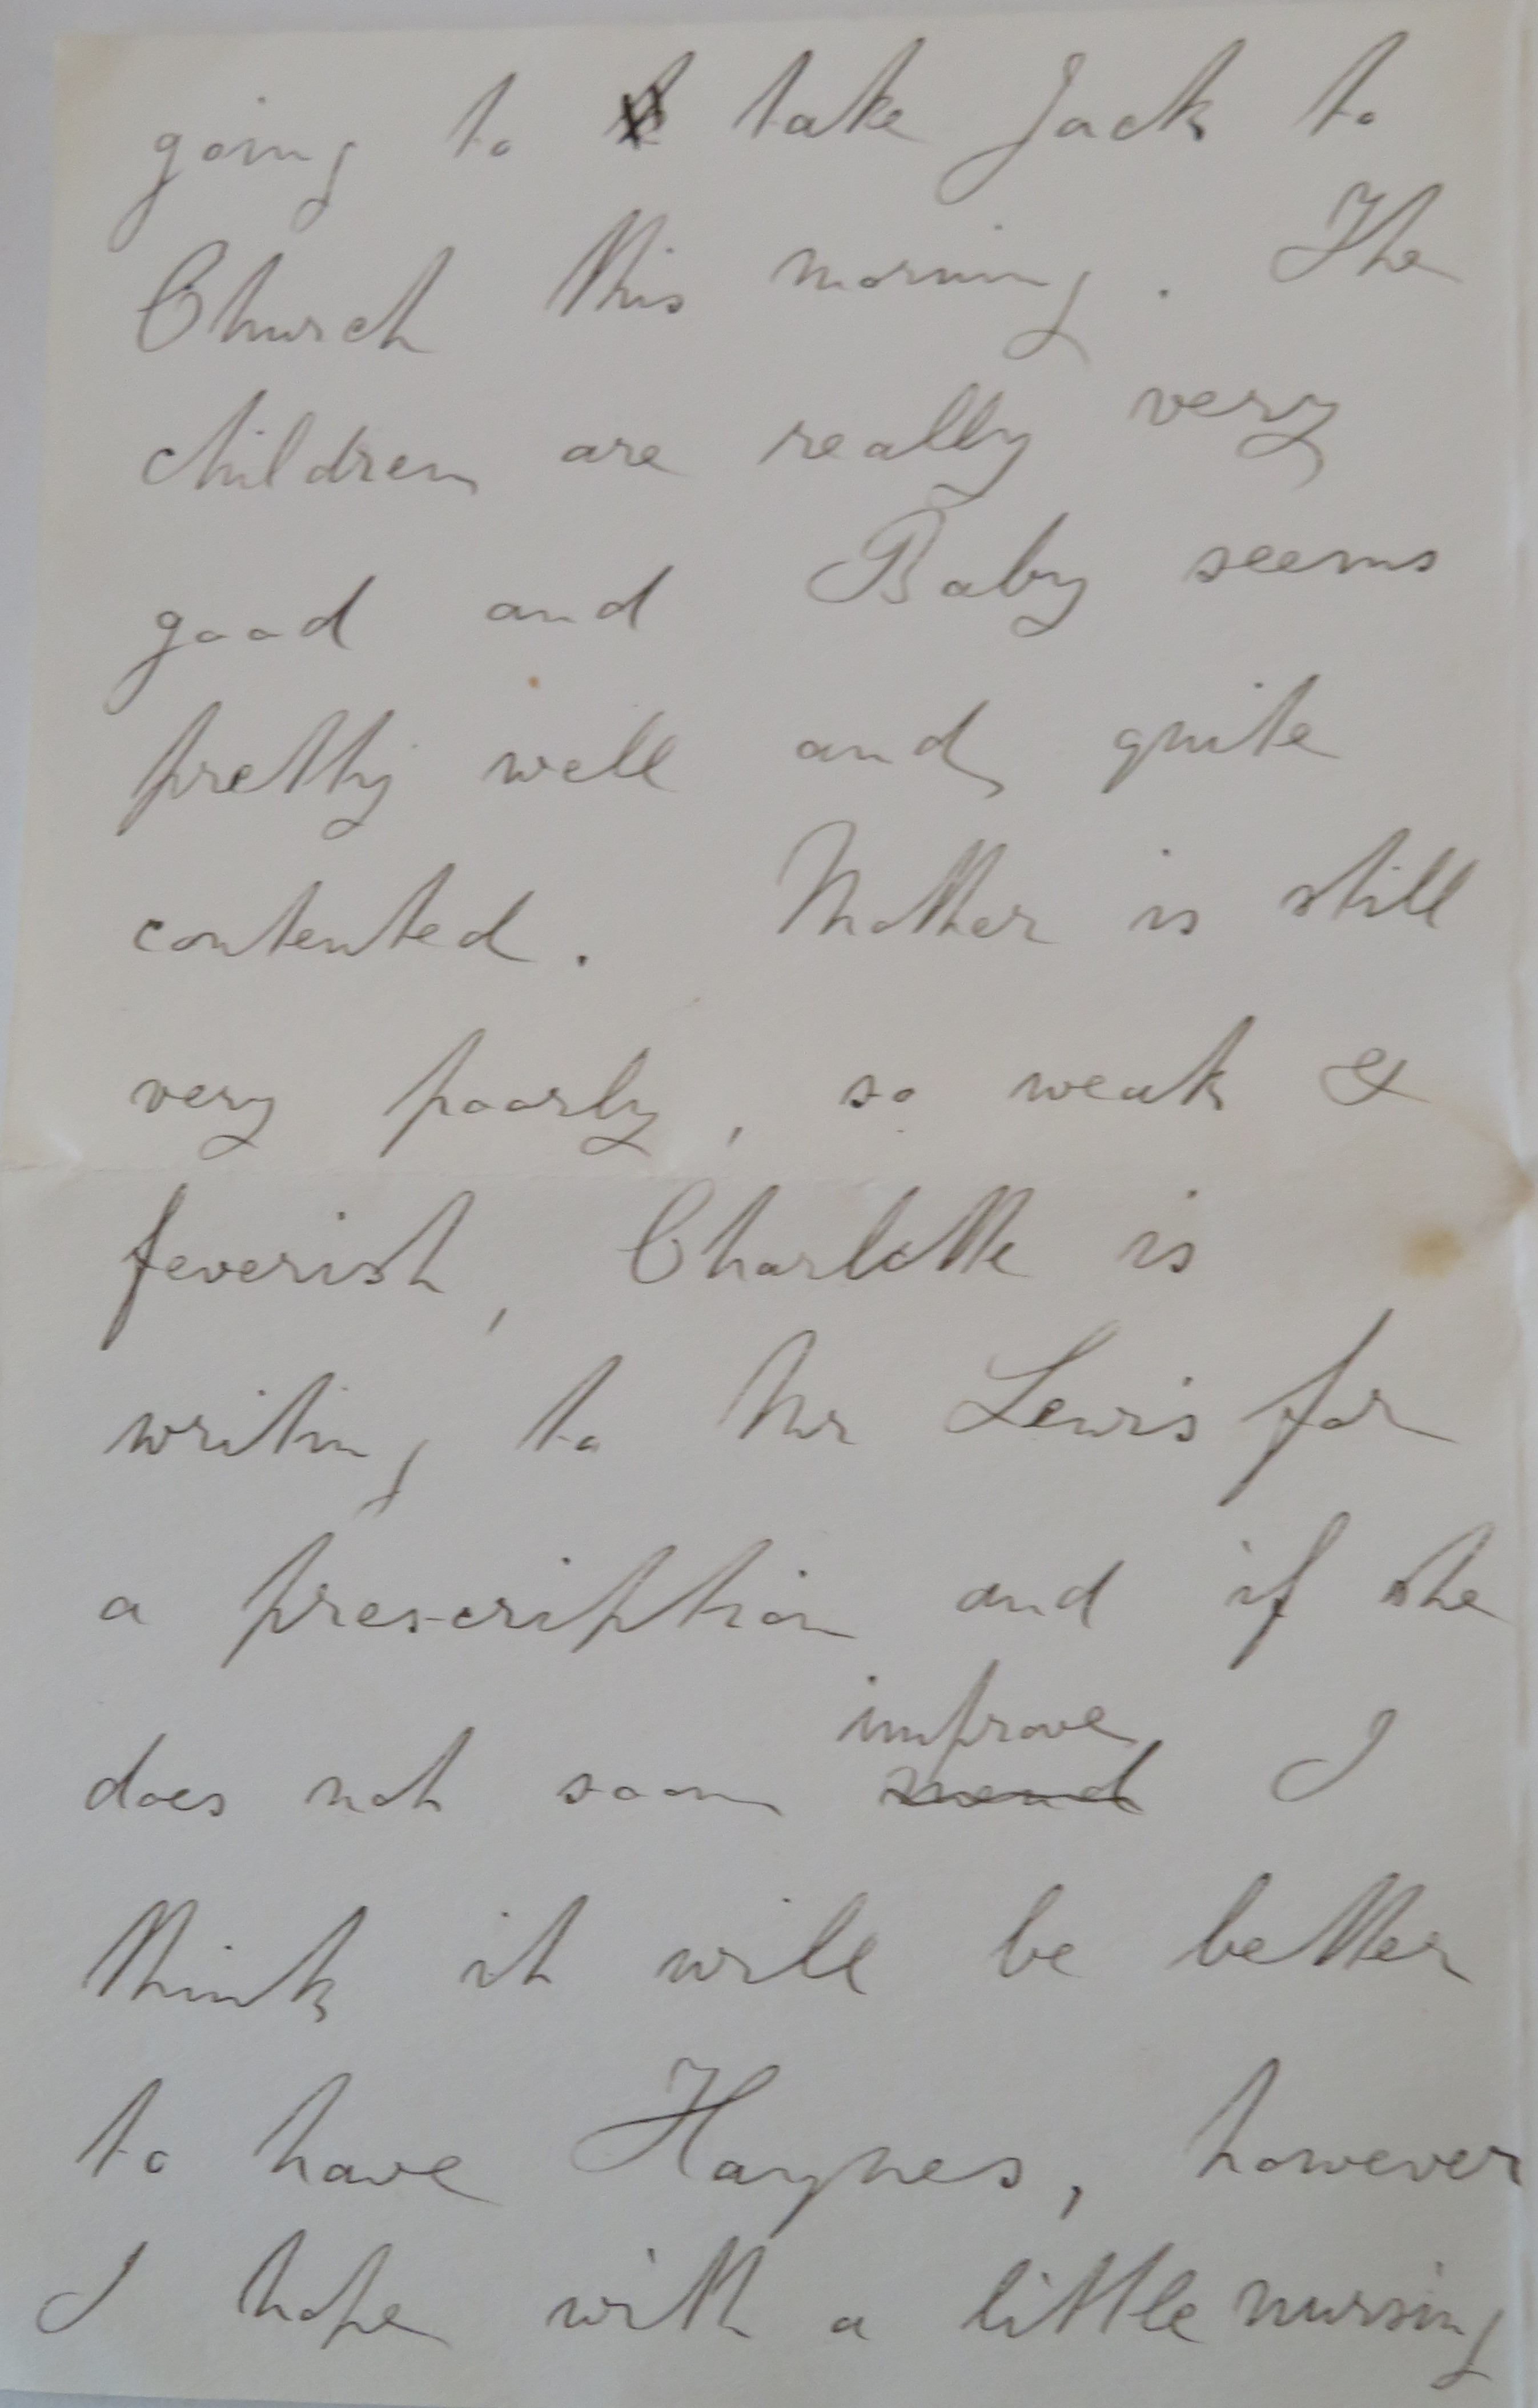 going to take Jack to
Church this morning. The
children are really very
good and Baby seems
pretty well and quite
contented. Mother is still
very poorly, so weak &
feverish, Charlotte is
writing to Mr Lewis for
a prescription and if she
improve
does not soon mend I
think it will be better
to have Haynes, however
I hope with a little nursing